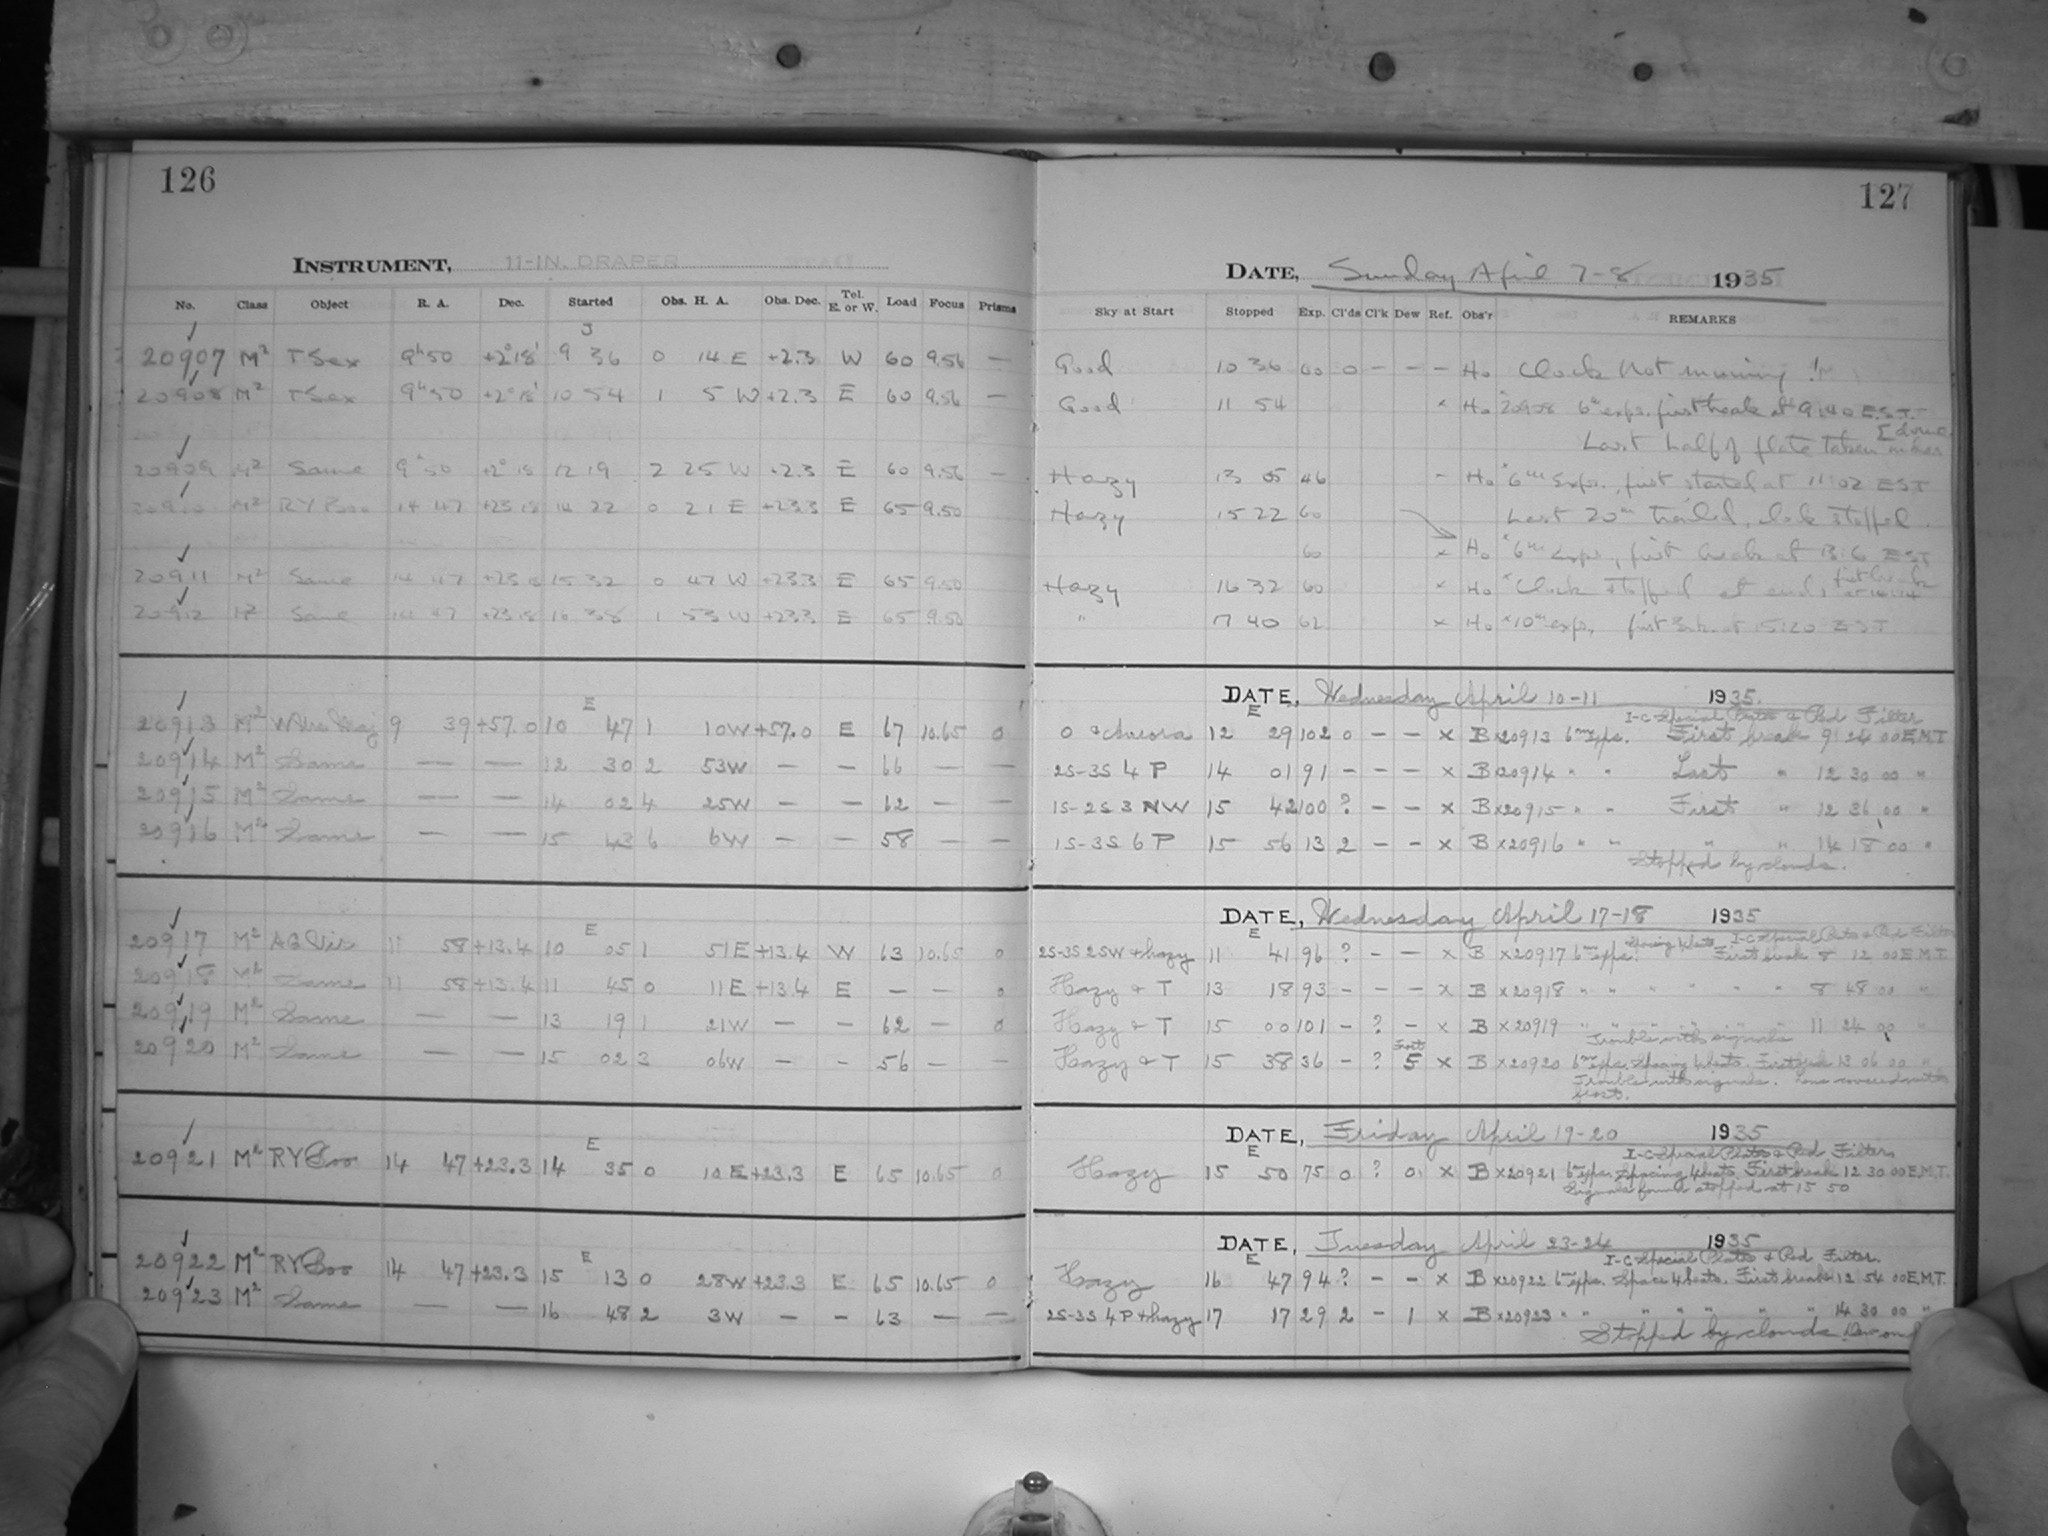 126
INSTRUMENT, 11-IN. DRAPER
No. Class Object R. A. Dec. Started Obs. H. A. Obs. Dec. Tel. E. or W. Load Focus Prisms
S
20907 M² T Sex 9ʰ50 +2°18' 9 36 0 14 E +2.3 W 60 9.56 —
20908 M² T Sex 9ʰ50 +2°18' 10 54 1 5 W +2.3 E 60 9.56 —
20909 M² Same 9ʰ50 +2°18 12 19 2 25 W +2.3 E 60 9.56 —
20910 M² RY Boo 14 47 +23 18 14 22 0 21 E +23.3 E 65 9.50
20911 M² Same 14 47 +23 18 15 32 0 47 W +23.3 E 65 9.50
20912 M² Same 14 47 +23 18 16 38 1 53 W +23.3 E 65 9.50
E
20913 M² W Urs Maj 9 39 +57.0 10 47 1 10W +57.0 E 67 10.65 0
20914 M² Same — — 12 30 2 53W — — 66 — —
20915 M² Same — — 14 02 4 25W — — 62 — —
20916 M² Same — — 15 43 6 6W — — 58 — —
E
20917 M² AG Vir 11 58 +13.4 10 05 1 51E +13.4 W 63 10.65 0
20918 M² Same 11 58 +13.4 11 45 0 11E +13.4 E — — 0
20919 M² Same — — 13 19 1 21W — — 62 — 0
20920 M² Same — — 15 02 3 06W — — 56 — —
E
20921 M² RY Boo 14 47 +23.3 14 35 0 10 E +23.3 E 65 10.65 0
E
20922 M² RY Boo 14 47 +23.3 15 13 0 28W +23.3 E 65 10.65 0
20923 M² Same — — 16 48 2 3W — — 63 — —
127
DATE, Sunday April 7-8 1935
Sky at Start Stopped Exp. Cl'ds Cl'k Dew Ref. Obs'r REMARKS
Good 10 36 60 0 — — — Ho Clock not running !
Good 11 54 x Ho 20908 6ᵐ exps. first break at 9:40 E.S.T.
Last half of plate taken
Hazy 13 05 46 — Ho 6ᵐ exps., first started at 11:02 EST
Hazy 15 22 60 Last 20ᵐ trailed, clock stopped.
60 x Ho 6ᵐ exps., first break at 13:6 EST
Hazy 16 32 60 x Ho Clock stopped at end, first break at 14:14
" 17 40 62 x Ho 10ᵐ exps, first brk. at 15:20 EST
DATE, Wednesday April 10-11 1935.
E I-C Special Plates & Red Filter
0 & Aurora 12 29 102 0 — — x B x20913 6ᵐ exps. First break 9 24 00 E.M.T
2S-3S 4 P 14 01 91 — — — x B x20914 " " Last " 12 30 00 "
1S-2S 3 NW 15 42 100 ? — — x B x20915 " " First " 12 36 00 "
1S-3S 6 P 15 56 13 2 — — x B x20916 " " " " 14 18 00 "
Stopped by clouds.
DATE, Wednesday April 17-18 1935
E I-C Special Plates & Red Filter
2S-3S 2SW & hazy 11 41 96 ? — — x B x20917 6ᵐ exps. Spacing 4 beats. First break 8 12 00 E.M.T.
Hazy & T 13 18 93 — — — x B x20918 " " " " " " 8 48 00 "
Hazy & T 15 00 101 — ? — x B x20919 " " " " " " 11 24 00 "
Trouble with signals
Hazy & T 15 38 36 — ? Frost 5 x B x20920 6ᵐ exps. Spacing 4 beats. First break 13 06 00 "
Trouble with signals. Lens covered with
frost.
DATE, Friday April 19-20 1935
E I-C Special Plates & Red Filters
Hazy 15 50 75 0 ? 0 x B x20921 6ᵐ exps. Spacing 4 beats. First break 12 30 00 E.M.T.
Signals found stopped at 15 50
DATE, Tuesday April 23-24 1935
E I-C Special Plates & Red Filter.
Hazy 16 47 94 ? — — x B x20922 6ᵐ exps. Space 4 beats. First break 12 54 00 E.M.T.
2S-3S 4 P & hazy 17 17 29 2 — 1 x B x20923 " " " " " " " 14 30 00 "
Stopped by clouds. Dew on